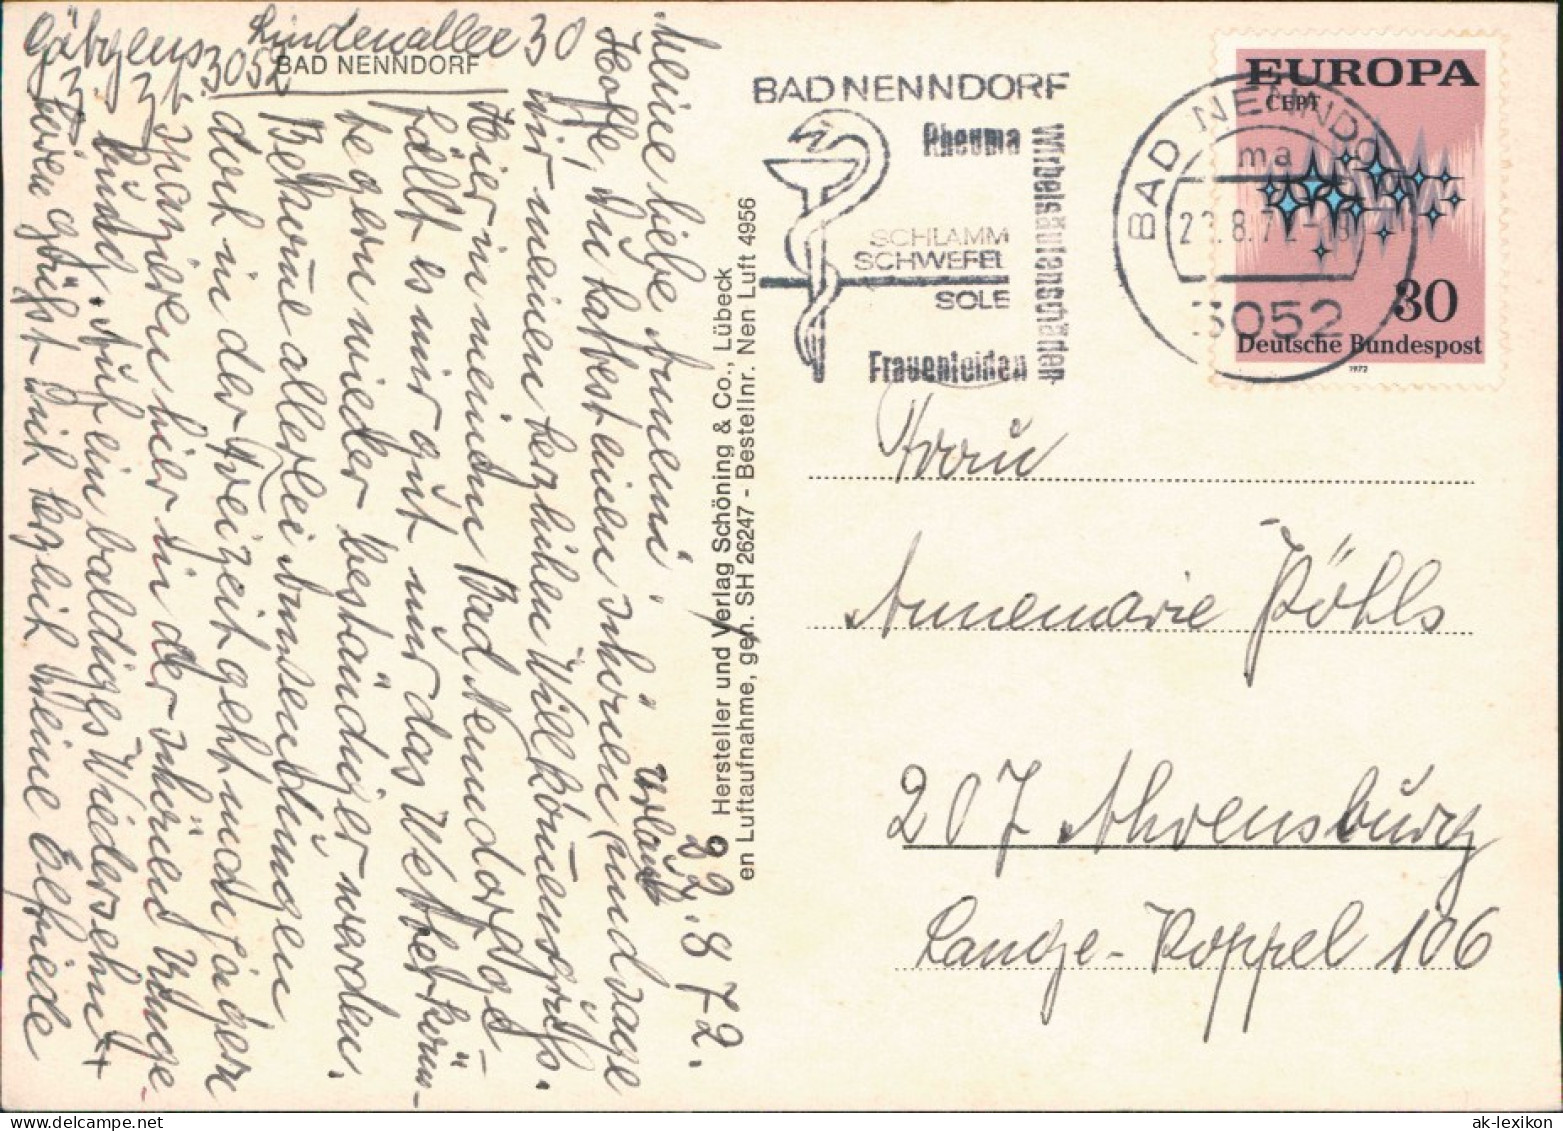 Lindenallee 30
3052
BAD NENNDORF
22. 8. 72.
Meine liebe Annemi!
Urlaub
Hoffe, Du hattest einen schönen und sage
mir meinen herzlichen Willkommensgruß.
Hier in meinem Bad Nenndorf ge-
fällt es mir gut nur das Wetter könn-
te gern wieder beständiger werden.
Betreue allerlei Anwendungen
doch in der Freizeit geht
spazieren hier in der schönen Umge-
bung. Auf ein baldiges Wiedersehn
grüßt Dich herzlich Deine Elfriede
Hersteller und Verlag Schöning & Co., Lübeck
en Luftaufnahme, gen. SH 26247 - Bestellnr. Nen Luft 4956
BAD NENNDORF
Rheuma
Wirbelsäulenschäden
SCHLAMM
SCHWEFEL
SOLE
Frauenleiden
BAD NENNDORF
ma
3052
EUROPA
CEPT
30
Deutsche Bundespost
1972
Frau
Annemarie Pöhls
207 Ahrensburg
Lange-Koppel 106
ak-lexikon.com